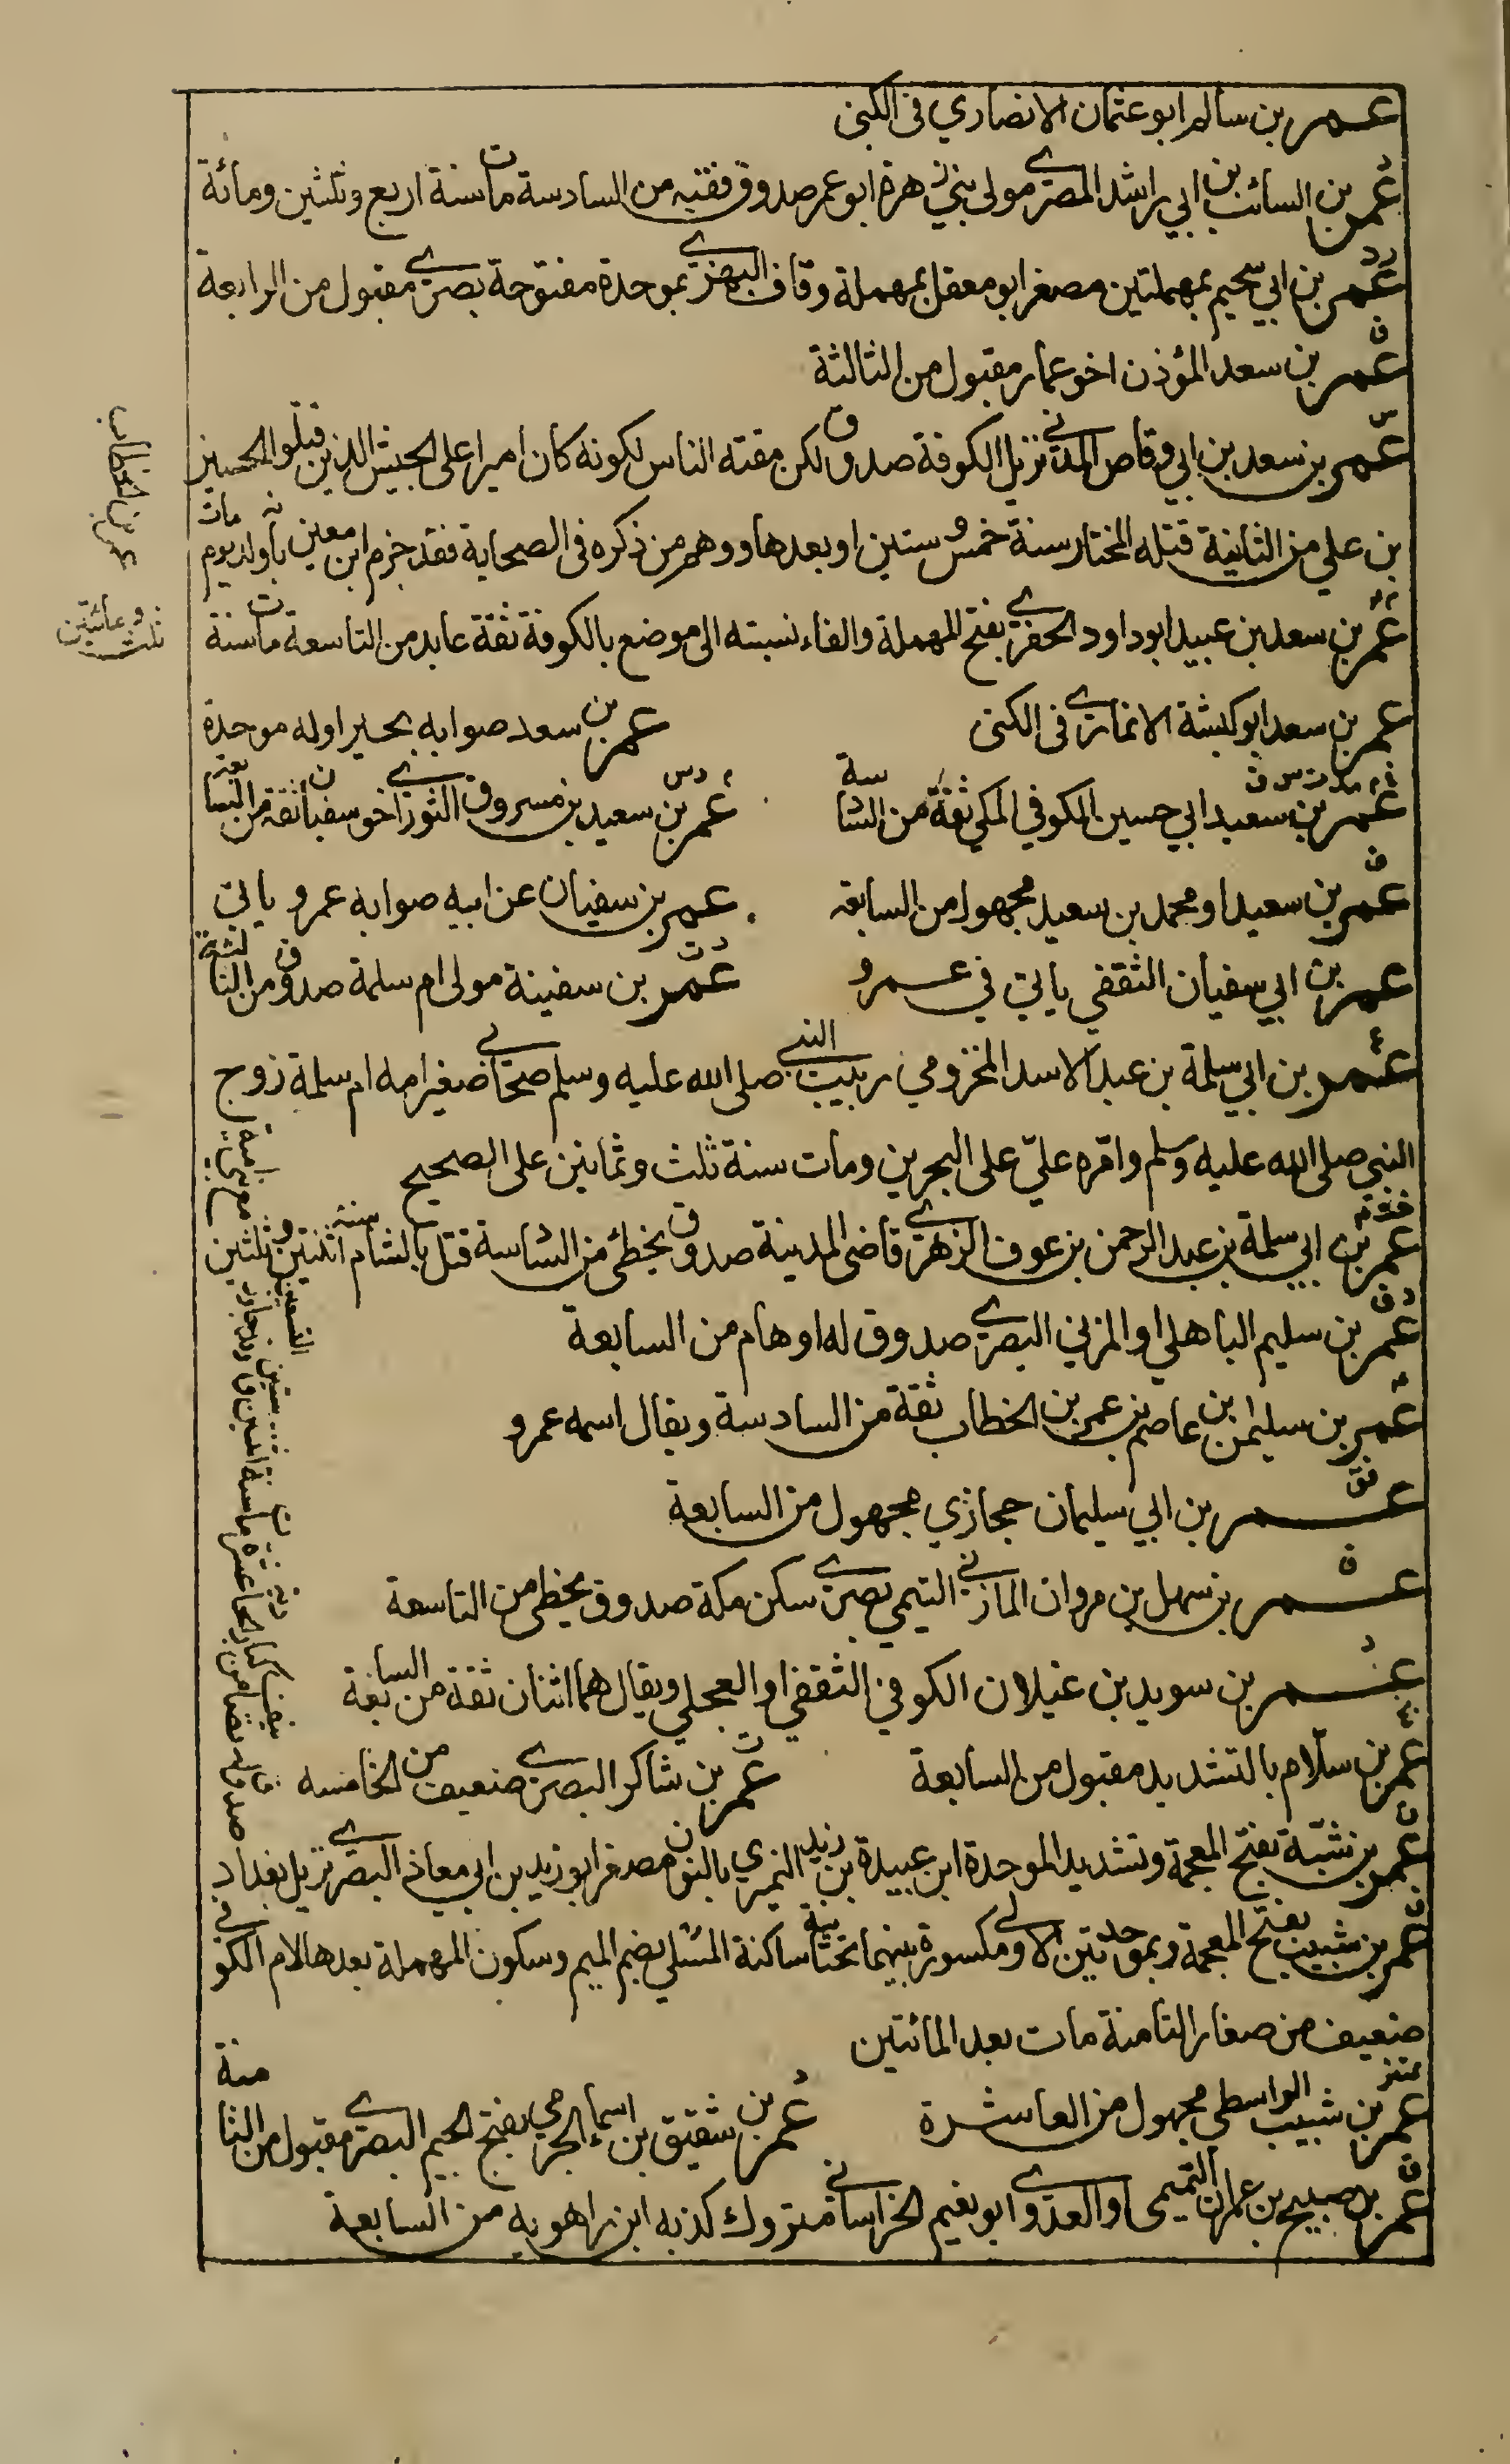 عمر بن سالم ابو عثمان الانصاري في الكنى
د
عمر بن السائب بن ابي راشد المصري مولى بني زهرة ابو عمر صدوق فقيه من السادسة مات سنة اربع وثلثين ومائة
عمر بن ابي سحيم بمهملتين مصغر ابو معقل بمهملة وقاف البهزي بموحدة مفتوحة بصري مقبول من الرابعة
ق
عمر بن سعد المؤذن اخو عمار مقبول من الثالثة
س
عمر بن سعد بن ابي وقاص المدني نزيل الكوفة صدوق لكن مقته الناس لكونه كان اميرا على الجيش الذين قتلوا الحسين
بن علي من الثانية قتله المختار سنة خمس وستين او بعدها ووهم من ذكره في الصحابة فقد جزم ابن معين بانه ولد يوم مات
عمر بن الخطاب
عمر بن سعد بن عبيد ابو داود الحفري بفتح المهملة والفاء نسبته الى موضع بالكوفة ثقة عابد من التاسعة مات سنة
ثلث ومائتين
عمر بن سعد ابو كبشة الانماري في الكنى
عمر بن سعد صوابه بحير اوله موحدة
عمر بن سعيد ابي حسين الكوفي المكي ثقة من السادسة
عمر بن سعيد بن مسروق الثوري اخو سفيان ثقة من السابعة
ق
عمر بن سعيد او محمد بن سعيد مجهول من السابعة
عمر بن سفيان عن ابيه صوابه عمرو ياتي
عمر بن ابي سفيان الثقفي ياتي في عمرو
د ت
عمر بن سفينة مولى ام سلمة صدوق من الثالثة
ع
عمر بن ابي سلمة بن عبد الاسد المخزومي ربيب النبي صلى الله عليه وسلم صحابي صغير امه ام سلمة زوج
النبي صلى الله عليه وسلم وامره علي على البحرين ومات سنة ثلث وثمانين على الصحيح
عمر بن ابي سلمة بن عبد الرحمن بن عوف الزهري قاضي المدينة صدوق يخطئ من السادسة قتل بالشام سنة اثنتين وثلثين
مع بني امية
د ق
عمر بن سليم الباهلي او المزني البصري صدوق له اوهام من السابعة
عمر بن سليمن بن عاصم بن عمر بن الخطاب ثقة من السادسة ويقال اسمه عمرو
عمر بن ابي سليمان حجازي مجهول من السابعة
ق
عمر بن سهل بن مروان المازني التيمي بصري سكن مكة صدوق يخطئ من التاسعة
د
عمر بن سويد بن غيلان الكوفي الثقفي او العجلي ويقال هما اثنان ثقة من السابعة
عمر بن سلام بالتشديد مقبول من السابعة
ت
عمر بن شاكر البصري ضعيف من الخامسة
ق
عمر بن شبة بفتح المعجمة وتشديد الموحدة ابن عبيدة بن زيد النميري بالنون مصغر ابو زيد بن ابي معاذ البصري نزيل بغداد
صدوق له تصانيف من كبار الحادية عشرة مات سنة اثنتين وستين وقد جاوز التسعين
ق
عمر بن شبيب بفتح المعجمة وبموحدتين الاولى مكسورة بينهما تحتانية ساكنة المسلي بضم الميم وسكون المهملة بعدها لام الكوفي
ضعيف من صغار الثامنة مات بعد المائتين
عمر بن شبيب الواسطي مجهول من العاشرة
د
عمر بن شقيق بن اسماء الجرمي بفتح الجيم البصري مقبول من الثامنة
ق
عمر بن صبيح بن عمران التميمي او العدوي ابو نعيم الخراساني متروك كذبه ابن راهويه من السابعة